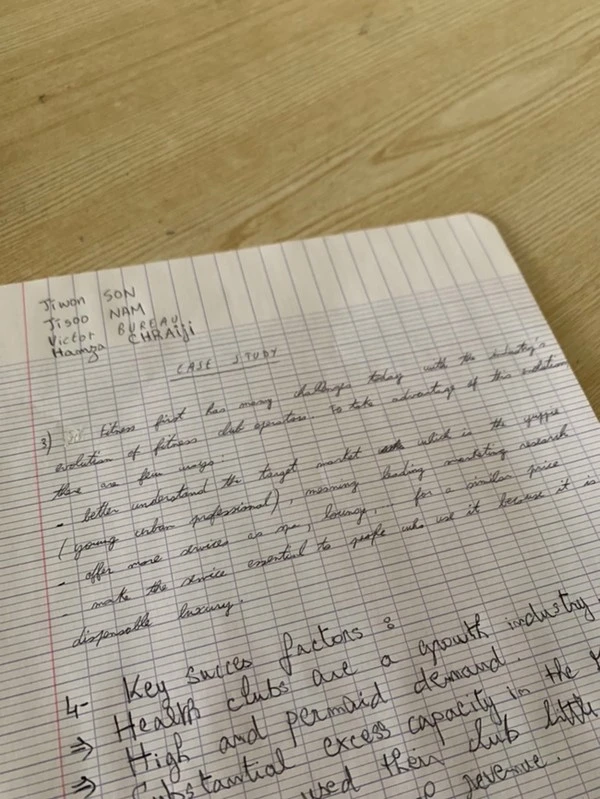 Jiwon SON
Jisoo NAM
Victor BUREAU
Hamza CHRAIJI
CASE STUDY
3) Fitness first has many challenges today with the industry's
evolution of fitness club operators. To take advantage of this evolution
there are few ways:
- better understand the target market which is the yuppie
(young urban professional), meaning leading marketing research
- offer more services as spa, lounge,... for a similar price
- make the service essential to people who use it because it is
disposable luxury.
4- Key succes factors :
⇒ Health clubs are a growth industry
⇒ High and permaid demand.
⇒ Substantial excess capacity in the
used their club little
revenue.